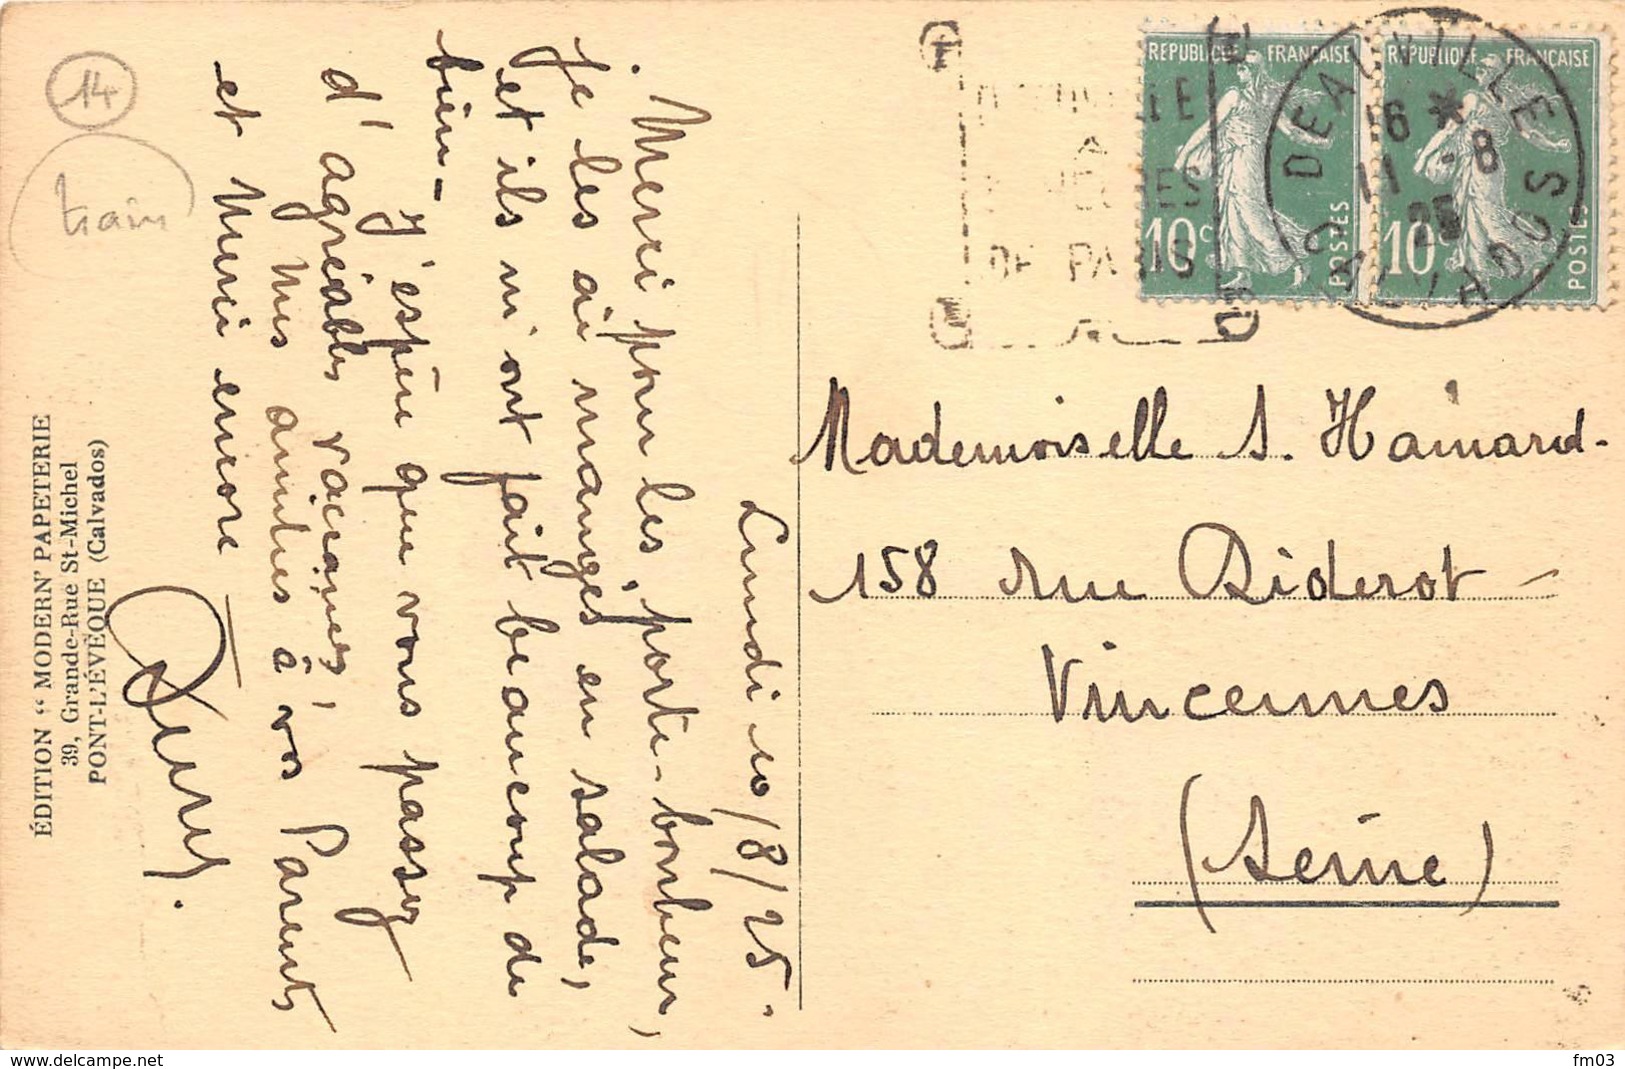 14
train
ÉDITION “ MODERN' PAPETERIE
39, Grande-Rue St-Michel
PONT-L'ÉVÊQUE (Calvados)
Lundi 10/8/25.
Merci pour les porte-bonheur,
Je les ai mangés en salade,
et ils m'ont fait beaucoup de
bien -
J'espère que vous passez
d'agréables vacances,
Mes amitiés à vos Parents
et Merci encore
DE PARIS
REPUBLIQUE FRANÇAISE
10c
POSTES
REPUBLIQUE FRANÇAISE
10c
POSTES
DEAUVILLE
16 *
11 - 8
25
CALVADOS
Mademoiselle S. Hainard -
158 rue Diderot -
Vincennes
(Seine)
www.delcampe.net
fm03